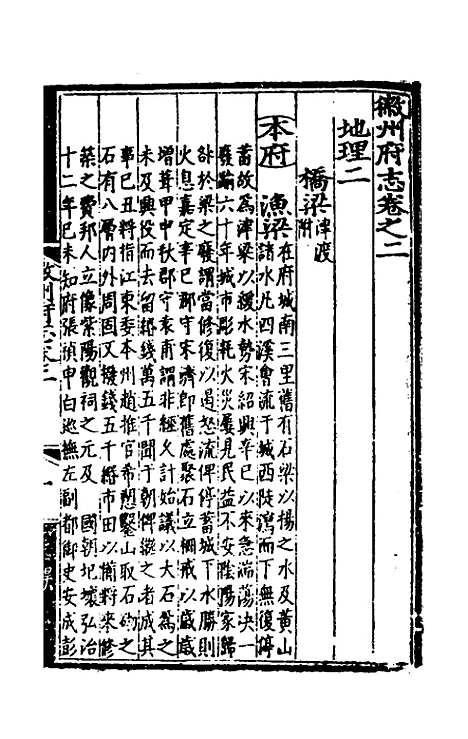 徽州府志卷之二
地理二
橋梁津渡附
本府
漁梁在府城南三里舊有石梁以揚之水及黃山
諸水凡四溪會流于城西陡瀉而下無復停
蓄故爲津梁以緩水勢宋紹興辛巳以來急湍蕩決一
廢踰六十年城市彫耗火災屢見民益不安陰陽家歸
咎於梁之廢謂當修復以遏怒流俾停蓄城下水勝則
火息嘉定辛巳郡守宋濟卽舊處聚石立柵戒以歲歲
增葺甲申秋郡守袁甫謂非經久計始議以大石爲之
未及興役而去留緡錢萬五千聞于朝俾繼之者成其
事己丑將指江東委本州趙推官希
鑿山取石
之
石有八層內外周固又撥錢五千緡市田以備將來修
築之費邦人立像紫陽觀祠之元及 國朝圮壞弘治
十二年己未知府張禎申白巡撫左副都御史安成彭
徽州府志卷二
一